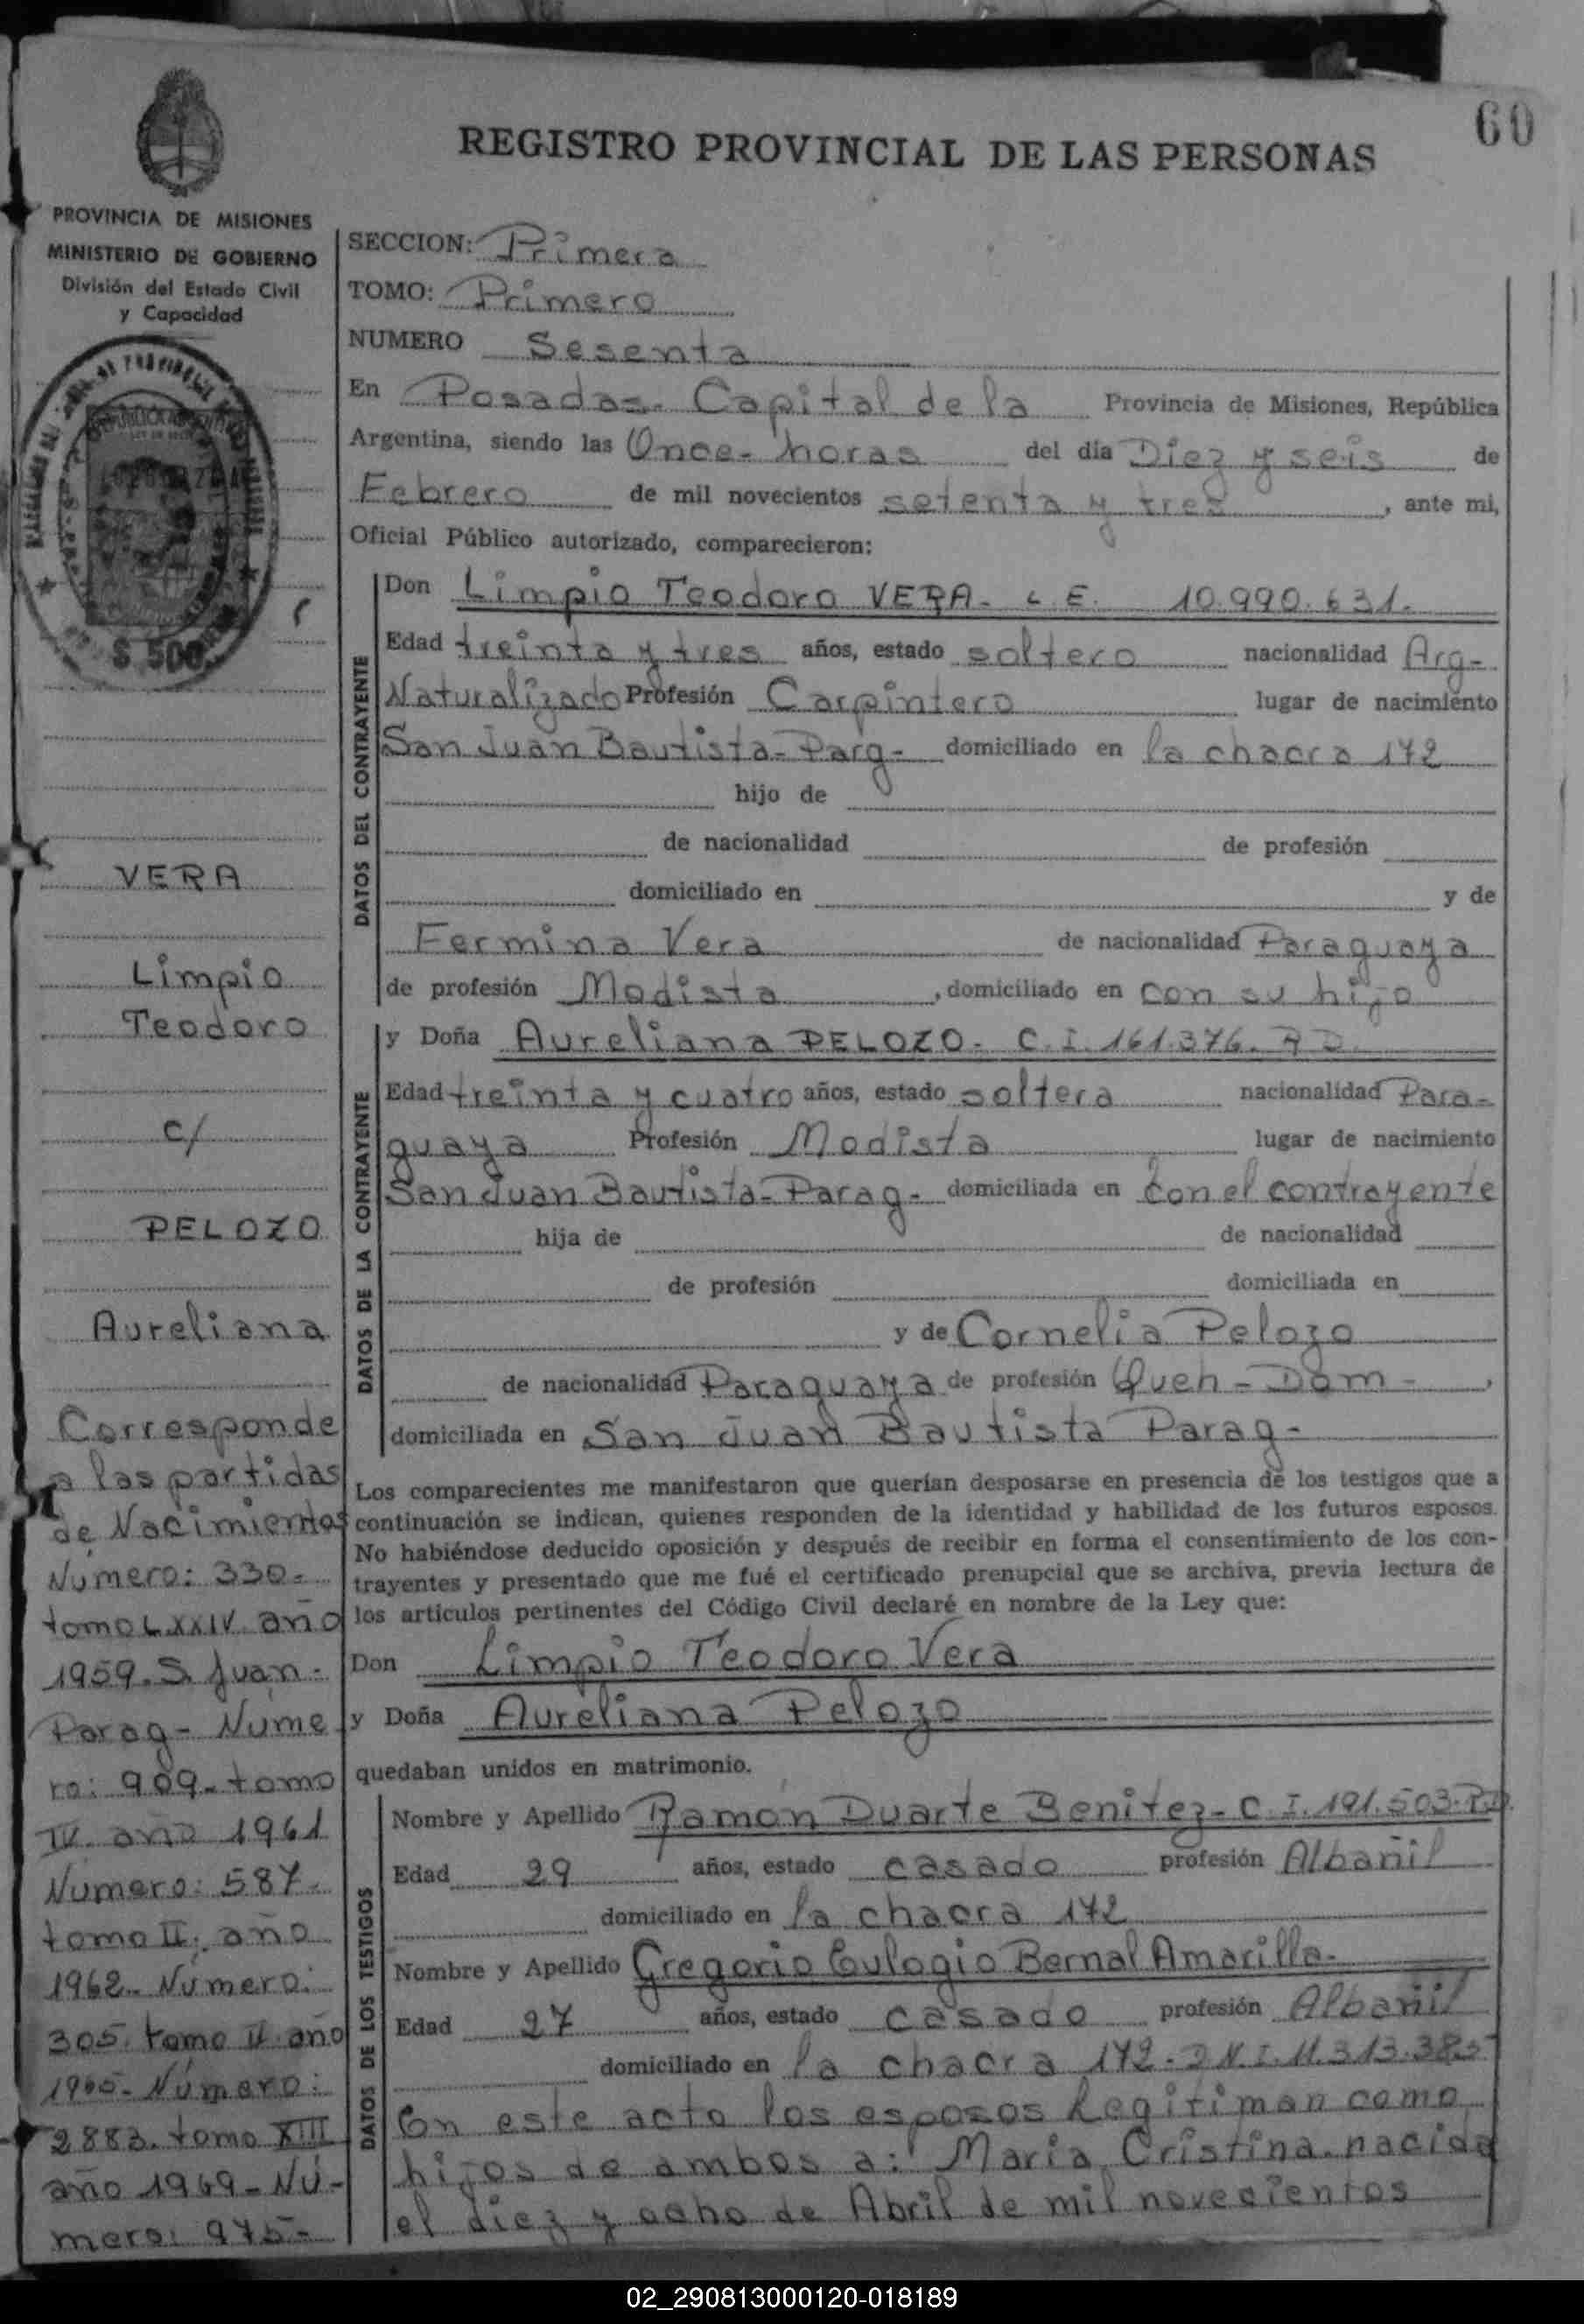 60
REGISTRO PROVINCIAL DE LAS PERSONAS
PROVINCIA DE MISIONES
MINISTERIO DE GOBIERNO
División del Estado Civil
y Capacidad
$ 500
VERA
Limpio
Teodoro
c/
PELOZO
Aureliana
Corresponde
a las partidas
de Nacimientos
Número: 330-
tomo LXXIV. año
1959. S. Juan-
Parag- Núme
ro: 909- tomo
IV. año 1961
Número: 587-
tomo II. año
1962- Número:
305. tomo II año
1965- Número:
2883. tomo XIII
año 1969- Nú-
mero: 975-
SECCION: Primera
TOMO: Primero
NUMERO Sesenta
En Posadas- Capital de la Provincia de Misiones, República
Argentina, siendo las Once- horas del día Diez y seis de
Febrero de mil novecientos setenta y tres, ante mi,
Oficial Público autorizado, comparecieron:
DATOS DEL CONTRAYENTE
Don Limpio Teodoro VERA- L. E. 10.990.631.
Edad treinta y tres años, estado soltero nacionalidad Arg-
Naturalizado Profesión Carpintero lugar de nacimiento
San Juan Bautista- Parg- domiciliado en la chacra 172
hijo de
de nacionalidad de profesión
domiciliado en y de
Fermina Vera de nacionalidad Paraguaya
de profesión Modista, domiciliado en con su hijo
DATOS DE LA CONTRAYENTE
y Doña Aureliana PELOZO- C. I. 161.376.
Edad treinta y cuatro años, estado soltera nacionalidad Para-
guaya Profesión Modista lugar de nacimiento
San Juan Bautista- Parag- domiciliada en Con el contrayente
hija de de nacionalidad
de profesión domiciliada en
y de Cornelia Pelozo
de nacionalidad Paraguaya de profesión Queh- Dom-,
domiciliada en San Juan Bautista Parag-
Los comparecientes me manifestaron que querían desposarse en presencia de los testigos que a
continuación se indican, quienes responden de la identidad y habilidad de los futuros esposos.
No habiéndose deducido oposición y después de recibir en forma el consentimiento de los con-
trayentes y presentado que me fué el certificado prenupcial que se archiva, previa lectura de
los artículos pertinentes del Código Civil declaré en nombre de la Ley que:
Don Limpio Teodoro Vera
y Doña Aureliana Pelozo
quedaban unidos en matrimonio.
DATOS DE LOS TESTIGOS
Nombre y Apellido Ramón Duarte Benítez- C. I. 191.503. P.D.
Edad 29 años, estado casado profesión Albañil
domiciliado en la chacra 172
Nombre y Apellido Gregorio Eulogio Bernal Amarilla-
Edad 27 años, estado casado profesión Albañil
domiciliado en la chacra 172- D.N.I. 11.313.385
En este acto los esposos Legitiman como
hijos de ambos a: María Cristina- nacida
el diez y ocho de Abril de mil novecientos
02_290813000120-018189